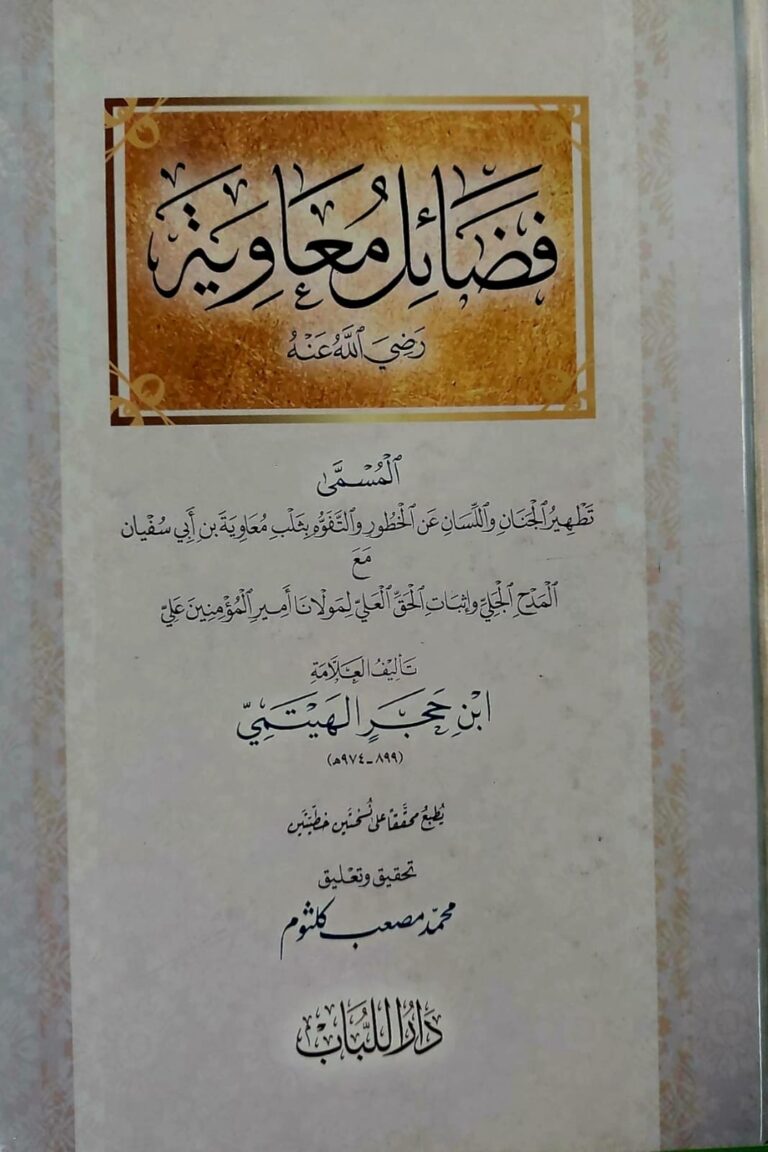 فَضَائِل مُعَاوِيَة
رَضِيَ اللَّهُ عَنْهُ
الْمُسَمَّىٰ
تَطْهِيرُ الْجَنَانِ وَاللِّسَانِ عَنِ الْخُطُورِ وَالتَّفَوُّهِ بِثَلْبِ مُعَاوِيَةَ بنِ أَبِي سُفْيَان
مَعَ
الْمَدْحِ الْجَلِيِّ وَإِثْبَاتِ الْحَقِّ الْعَلِيِّ لِمَوْلَانَا أَمِيرِ الْمُؤْمِنِينَ عَلِيّ
تَأْلِيفُ العَلَّامَةِ
ابْنِ حَجَرٍ الهَيْتَمِيّ
(٨٩٩ـ٩٧٤هـ)
يُطبعُ محقَّقاً على نُسْختَين خطيّتَين
تحقيق وتعليق
محمّد مصعب كلثوم
دَارُ اللُّبَابْ